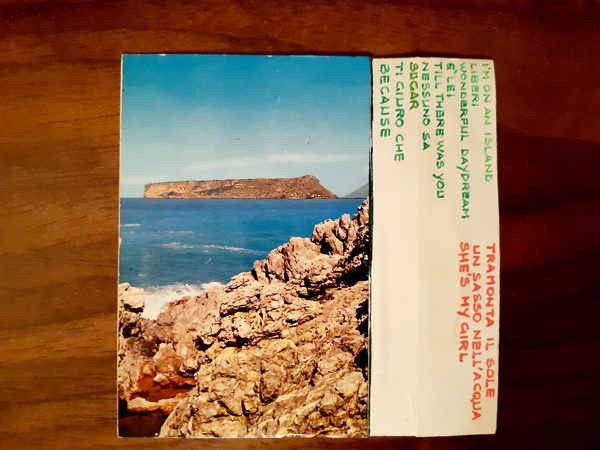 I'M ON AN ISLAND
LIBERI
WONDERFUL DAYDREAM
E' LEI
TILL THERE WAS YOU
NESSUNO SA
SUGAR
TI GIURO CHE
BECAUSE
TRAMONTA IL SOLE
UN SASSO NELL'ACQUA
SHE'S MY GIRL